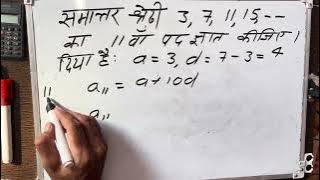 समान्तर श्रेढ़ी 3, 7, 11, 15, --
का 11वाँ पद ज्ञात कीजिए।
दिया है: a = 3, d = 7 - 3 = 4
11 a₁₁ = a + 10d
a₁₁